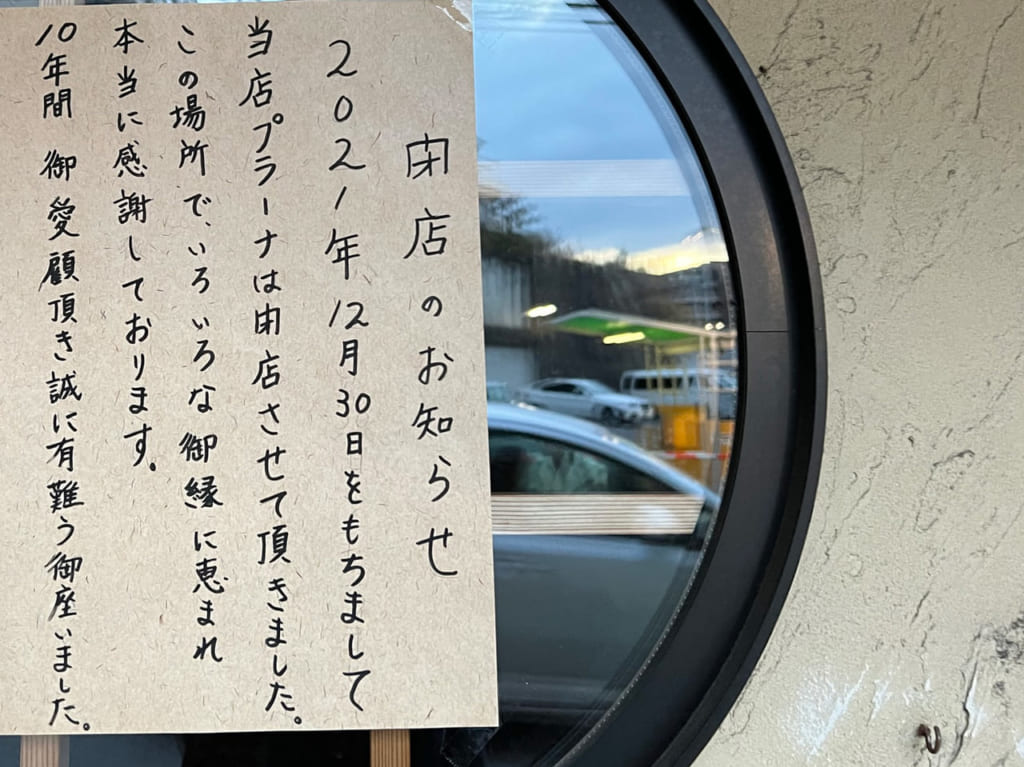 閉店のお知らせ
2021年12月30日をもちまして
当店プラーナは閉店させて頂きました。
この場所で、いろいろな御縁に恵まれ
本当に感謝しております。
10年間 御愛顧頂き誠に有難う御座いました。